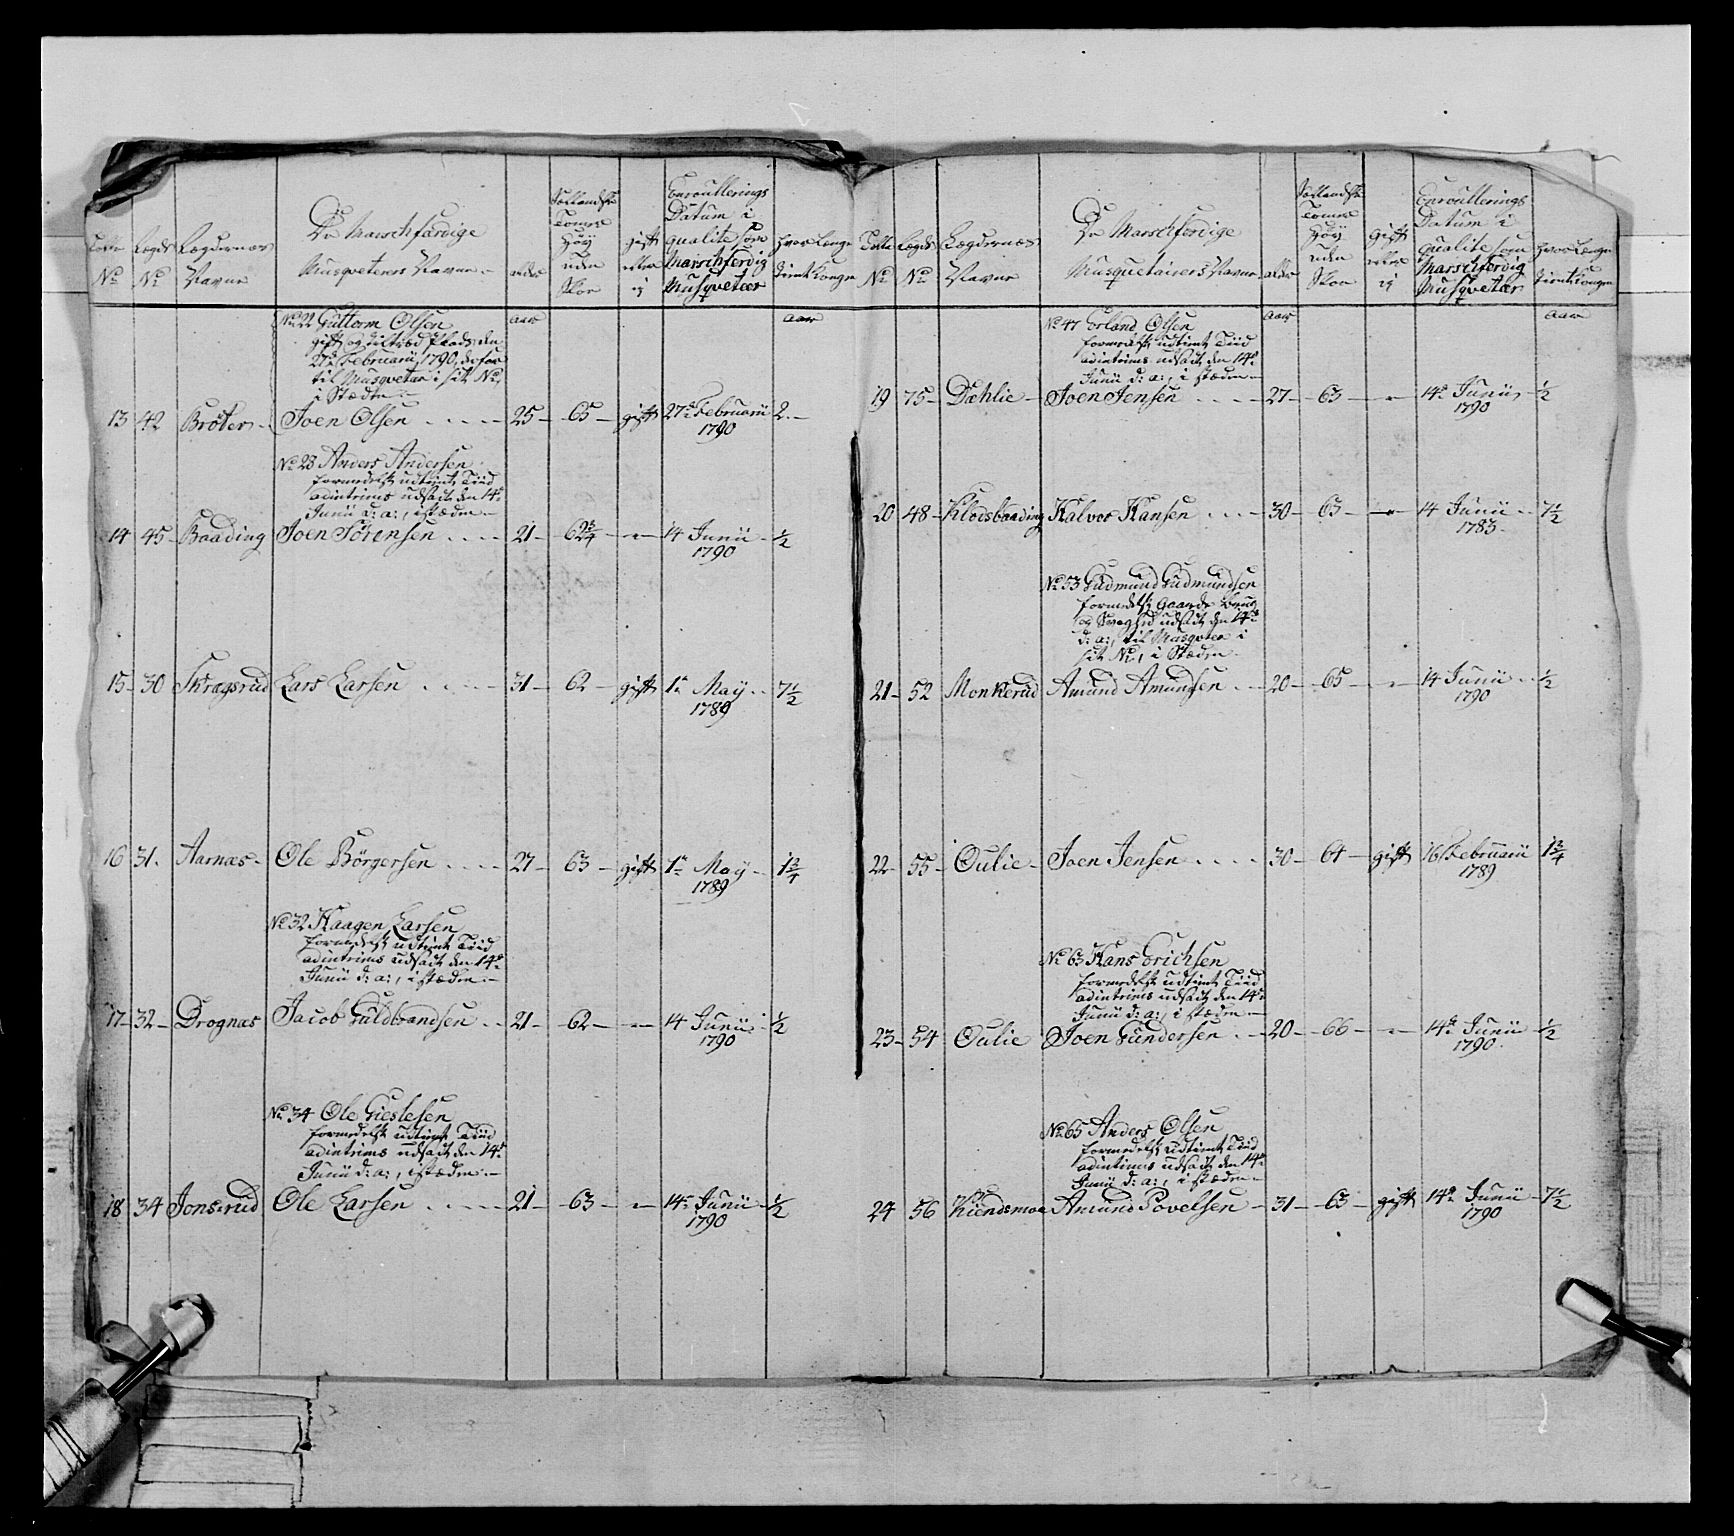 De Marschfærdige
Musqveterers Navne
Lægdernes
Navne
No
No
alder
Siællandske
Tomme
Høy
uden
Skoe
gift
eller
ej
Enroullerings
Datum i
qualite som
Marschferdig
Musqveteer
hvor Længe
tient Kongen
aar
aar
No 22 Guttorm Olsen
gift og
27de Februarii 1790, derfor
til Musqveter i sit No,
i Stædte
13 42 Brøter Joen Olsen 25 65 gift 27de Februarii 2
1790
No 23 Anders Andersen
formedelst udtient Tiid
adintrims udsadt den 14de
Junii d: a:, i stæden
14 45 Baading Joen Sørensen 21 62 3/4 14 Junii 1/2
1790
15 30 Skragsrud Lars Larsen 31 62 gift 1te May 7 1/2
1789
16 31 Aarnæs Ole Børgersen 27 63 gift 1te May 1 3/4
1789
No 32 Haagen Larsen
formedelst udtient Tiid
adintrims udsadt den 14de
Junii d: a:, i stæden
17 32 Drognæs Jacob Guldbrandsen 21 62 14 Junii 1/2
1790
No 34 Ole Gieslesen
formedelst udtient Tiid
adintrims udsadt den 14de
Junii d: a:, i stæden
18 34 Jonsrud Ole Larsen 21 63 14de Junii 1/2
1790
No
Lægds
No
Lægdernes
Navne
De Marschferdige
Musquetairers Navne
alder
Siællandske
Tomme
Høy
uden
Skoe
gift
eller
ej
Enroullerings
Datum i
qualite som
Marschferdig
Musqvetær
hvor Længe
tient Kongen
aar
aar
No 47 Erland Olsen
formedelst udtient Tiid
adintrims udsadt den 14de
Junii d: a:, i stæden
19 75 Dæhlie Joen Jensen 27 63 14de Junii 1/2
1790
20 48 Klodsbaading Halvor Hansen 30 63 14 Junii 7 1/2
1783
No 53 Gudmund Gudmundsen
formedelst Gaards Brug
og Svaghed udsadt den 14de
d: a:, til Musqveter i
sit No, i Stæden
21 52 Monkerud Amund Amundsen 20 65 14 Junii 1/2
1790
22 55 Oulie Joen Jensen 30 64 gift 16 Februarii 1 3/4
1789
No 63 Hans Erichsen
formedelst udtient Tiid
adintrims udsadt den 14de
Junii d: a:, i stæden
23 54 Oulie Joen Gundersen 20 66 14de Junii 1/2
1790
No 65 Anders Olsen
formedelst udtient Tiid
adintrims udsadt den 14de
Junii d: a:, i stæden
24 56 Kiendsmoe Amund Povelsen 31 63 gift 14de Junii 7 1/2
1790